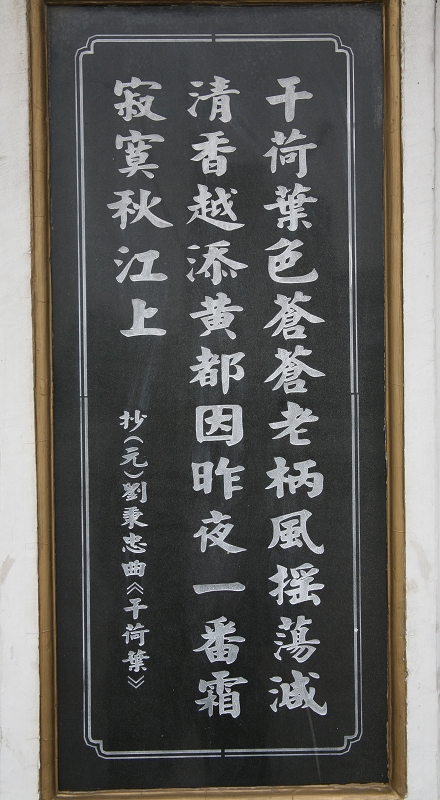 干荷葉色蒼蒼老柄風摇蕩減
清香越添黄都因昨夜一番霜
寂寞秋江上
抄(元)劉秉忠曲《干荷葉》